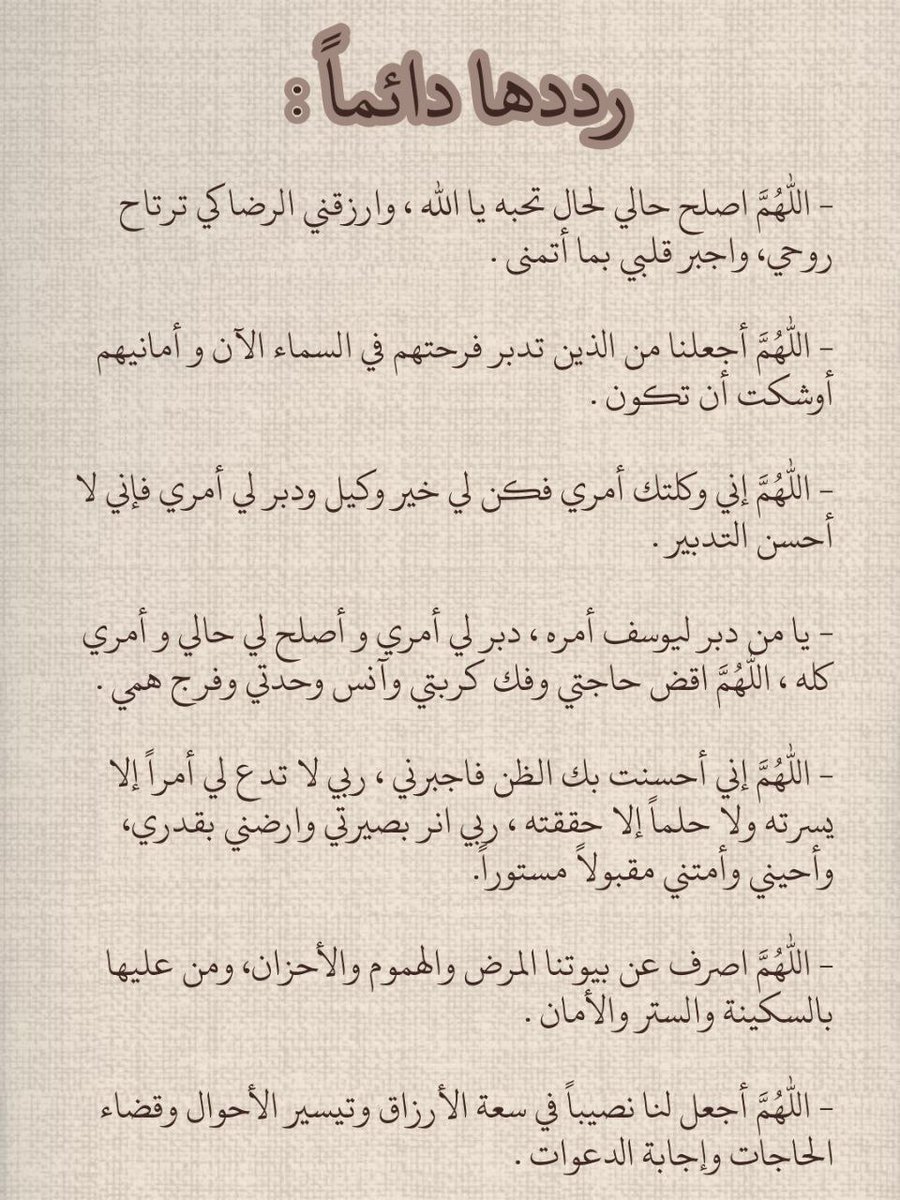 رددها دائماً :
- اللَّهُمَّ اصلح حالي لحال تحبه يا الله ، وارزقني الرضا كي ترتاح
روحي، واجبر قلبي بما أتمنى .
- اللَّهُمَّ أجعلنا من الذين تدبر فرحتهم في السماء الآن و أمانيهم
أوشكت أن تكون .
- اللَّهُمَّ إني وكلتك أمري فكن لي خير وكيل ودبر لي أمري فإني لا
أحسن التدبير .
- يا من دبر ليوسف أمره ، دبر لي أمري و أصلح لي حالي و أمري
كله ، اللَّهُمَّ اقض حاجتي وفك كربتي وآنس وحدتي وفرج همي .
- اللَّهُمَّ إني أحسنت بك الظن فاجبرني ، ربي لا تدع لي أمراً إلا
يسرته ولا حلماً إلا حققته ، ربي انر بصيرتي وارضني بقدري،
وأحيني وأمتني مقبولاً مستوراً.
- اللَّهُمَّ اصرف عن بيوتنا المرض والهموم والأحزان، ومن عليها
بالسكينة والستر والأمان .
- اللَّهُمَّ أجعل لنا نصيباً في سعة الأرزاق وتيسير الأحوال وقضاء
الحاجات وإجابة الدعوات .